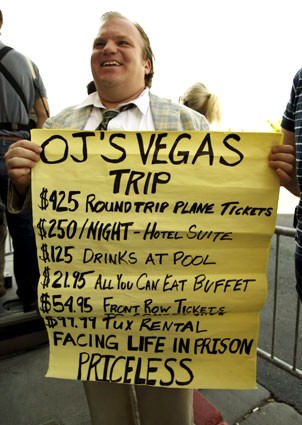 OJ'S VEGAS
TRIP
$425 ROUNDTRIP PLANE TICKETS
$250/NIGHT-HOTEL SUITE
$125 DRINKS AT POOL
$21.95 ALL YOU CAN EAT BUFFET
$54.95 FRONT ROW TICKETS
$97.99 TUX RENTAL
FACING LIFE IN PRISON
PRICELESS